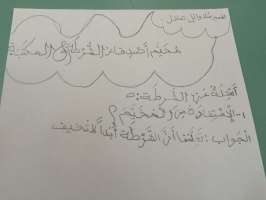 مخيم أصدقاء الشرطة في المكتبة
أسئلة عن الشرطة:
١- الاستفادة من المخيم؟
الجواب: تعلمنا أن الشرطة أبداً لا تخيف